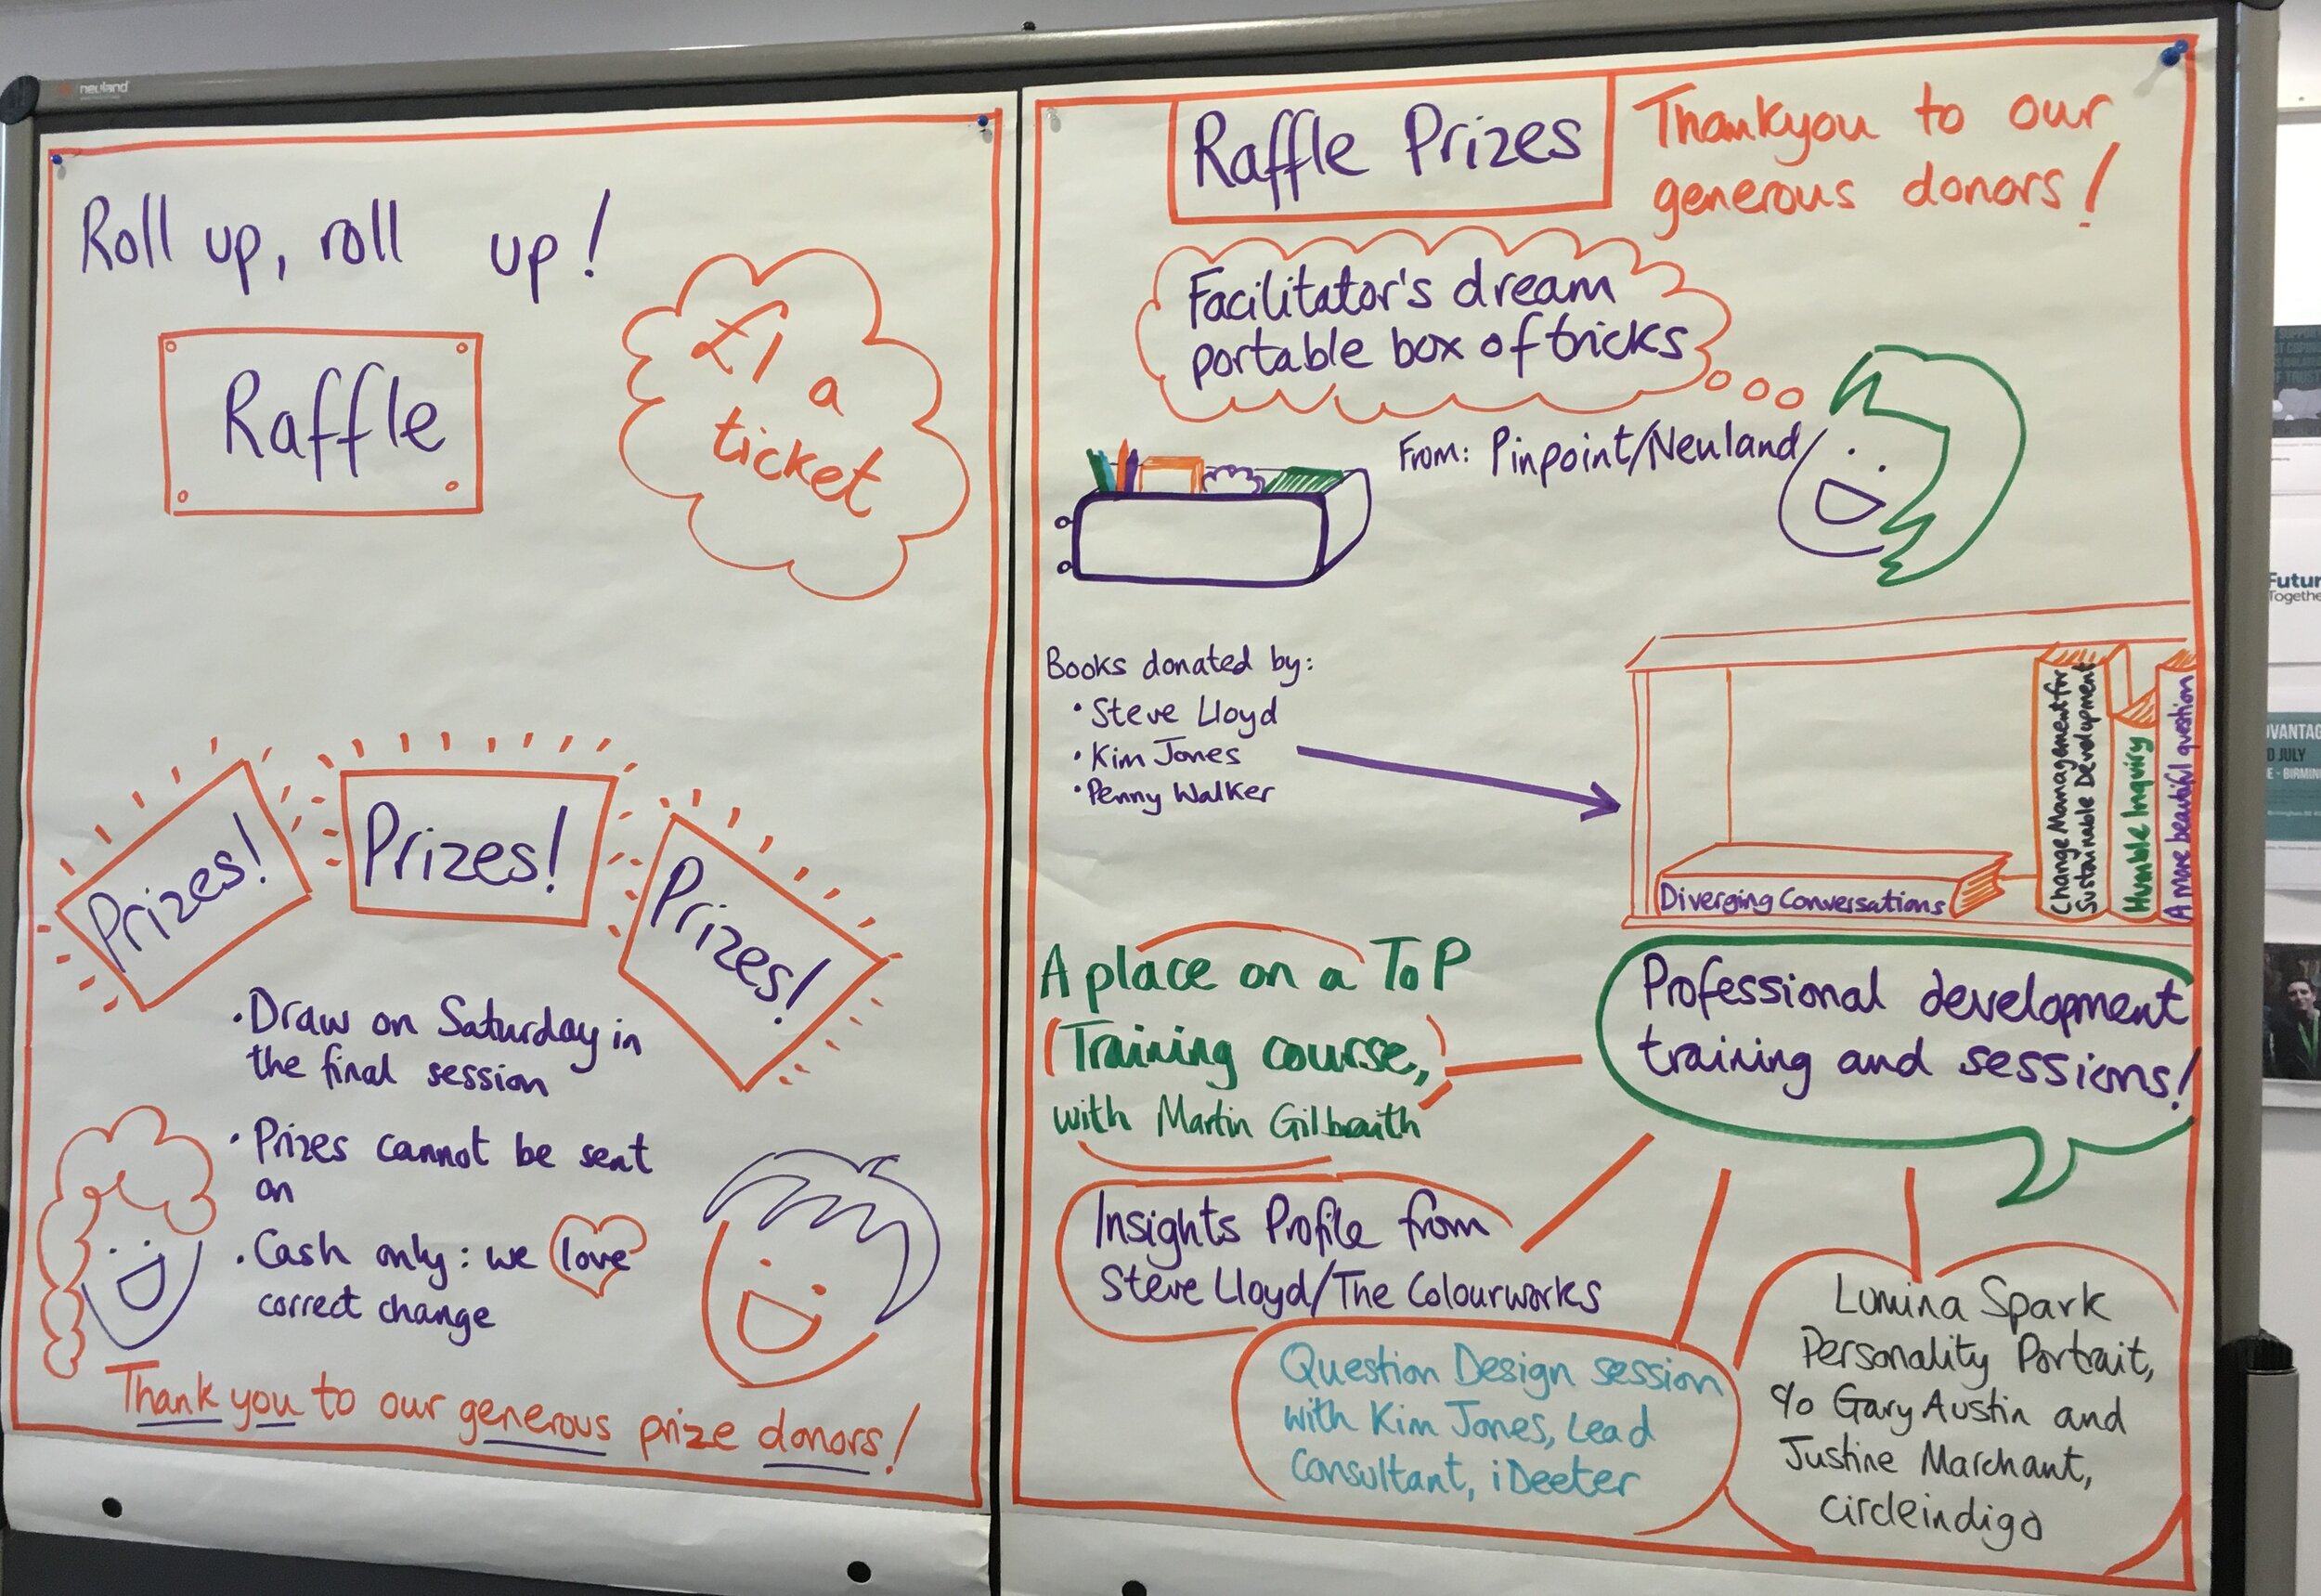 neuland
Roll up, roll up!
Raffle
£1 a
ticket
Prizes!
Prizes!
Prizes!
• Draw on Saturday in
the final session
• Prizes cannot be sent
on
• Cash only: we love
correct change
Thank you to our generous prize donors!
Raffle Prizes
Thankyou to our
generous donors!
Facilitator's dream
portable box of tricks
From: Pinpoint/Neuland
Books donated by:
• Steve Lloyd
• Kim Jones
• Penny Walker
Diverging Conversations
Change Management for
Sustainable Development
Humble Inquiry
A more beautiful question
Professional development
training and sessions!
A place on a ToP
Training course,
with Martin Gilbraith
Insights Profile from
Steve Lloyd/The Colourworks
Question Design session
with Kim Jones, Lead
Consultant, iDeeter
Lumina Spark
Personality Portrait,
c/o Gary Austin and
Justine Marchant,
circleindigo
Futur
Togethe
VANTAG
D JULY
E - BIRMIN